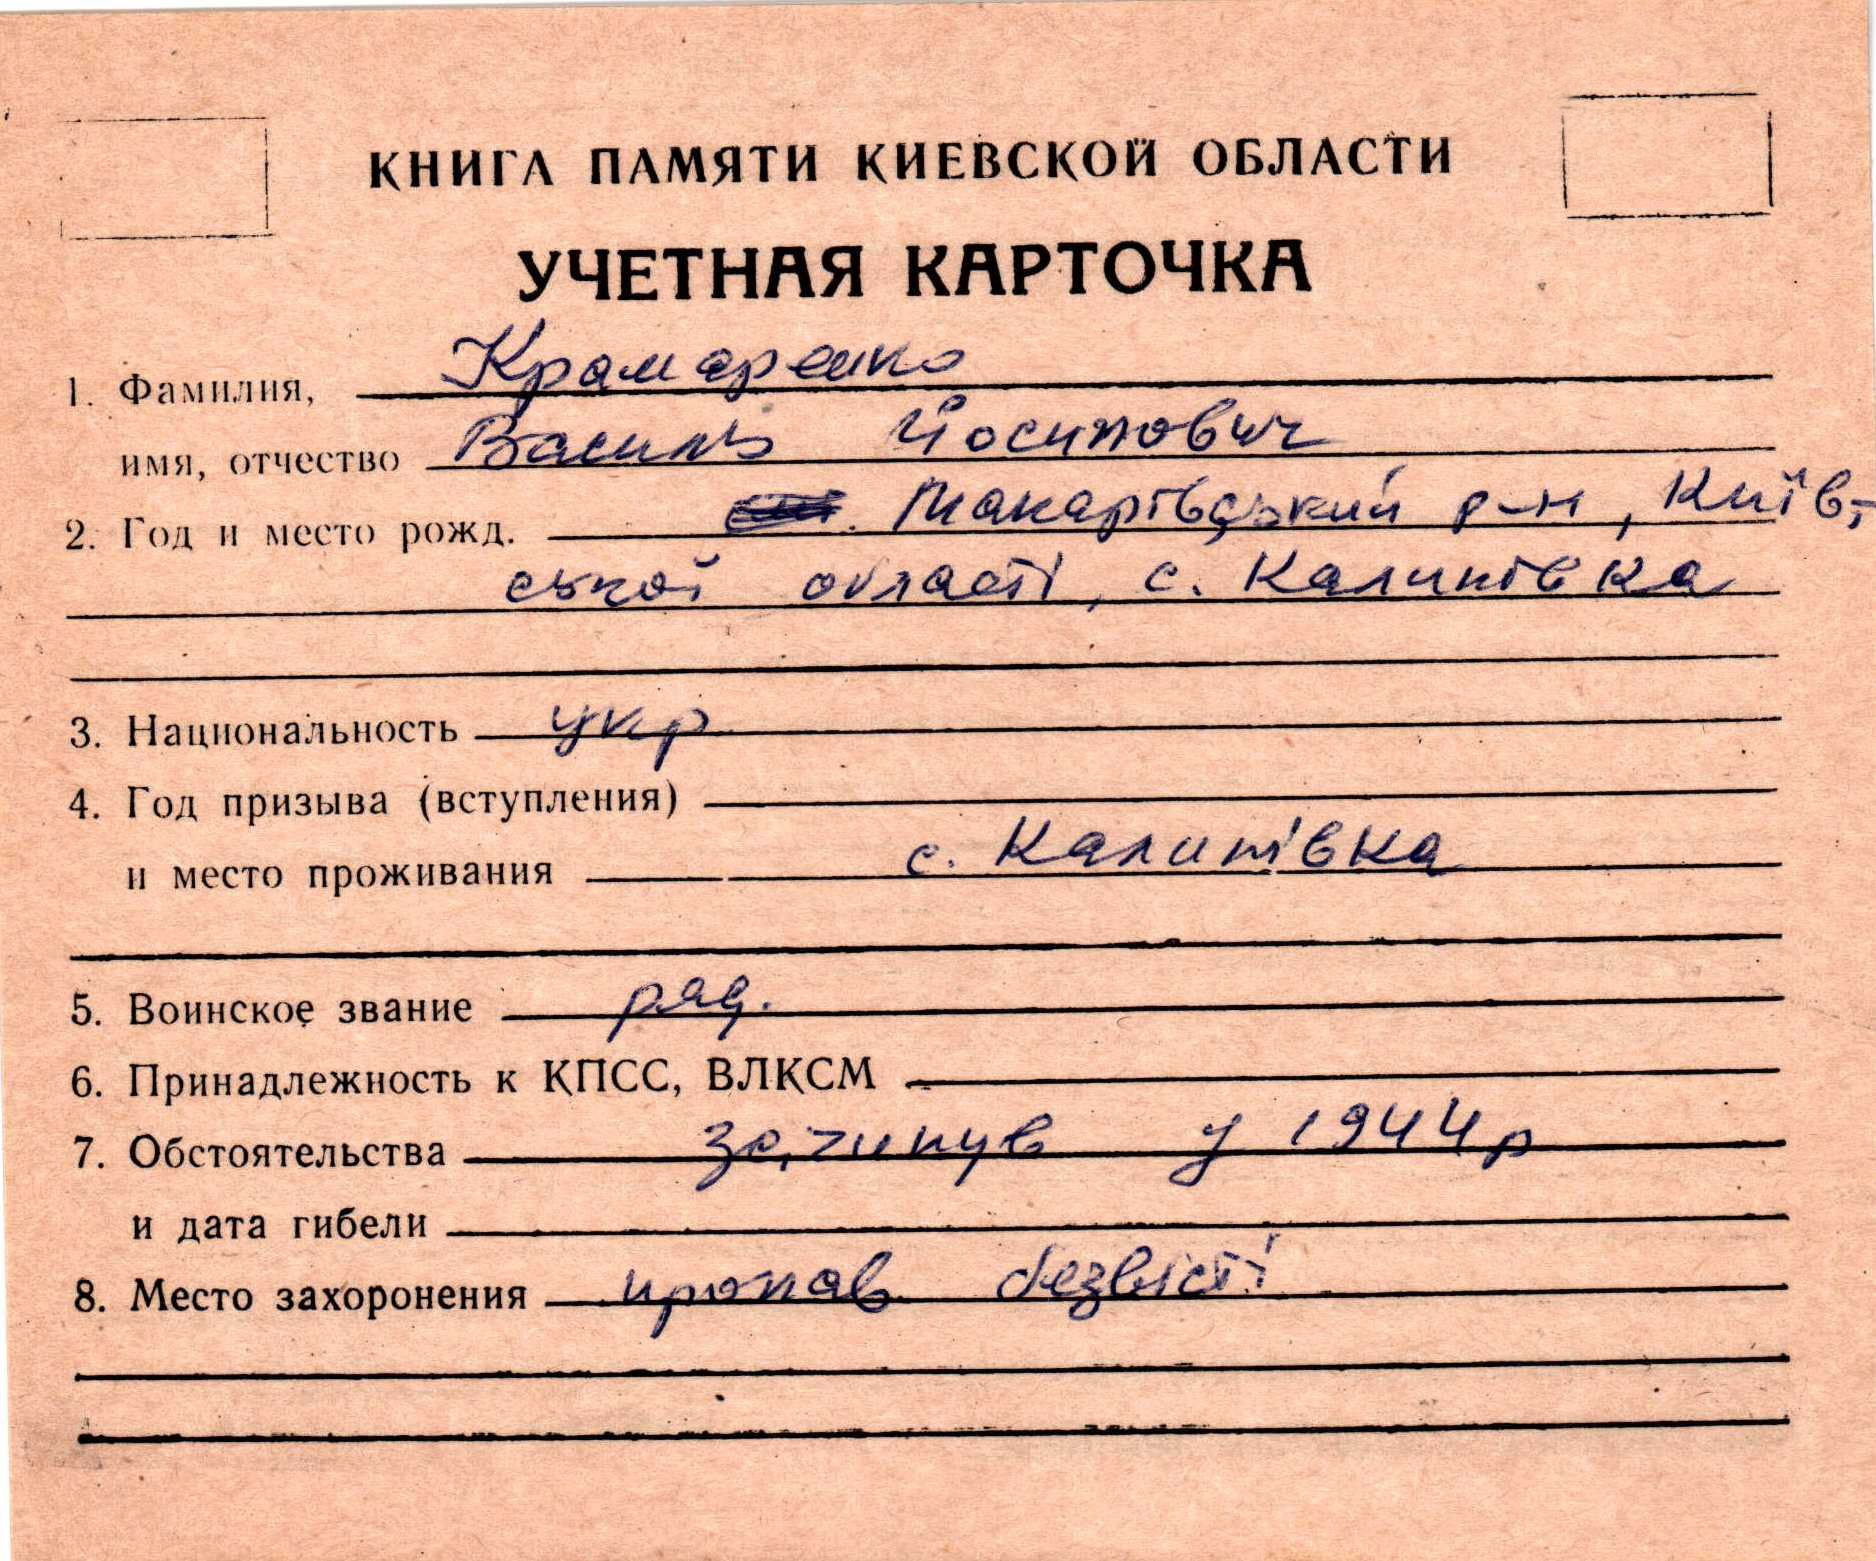 КНИГА ПАМЯТИ КИЕВСКОЙ ОБЛАСТИ
УЧЕТНАЯ КАРТОЧКА
1. Фамилия, Крамаренко
имя, отчество Василь Йосипович
2. Год и место рожд. Макарівський р-н, Київ-
ської області, с. Калинівка
3. Национальность укр
4. Год призыва (вступления)
и место проживания с. Калинівка
5. Воинское звание ряд.
6. Принадлежность к КПСС, ВЛКСМ
7. Обстоятельства загинув у 1944р
и дата гибели
8. Место захоронения пропав безвісті